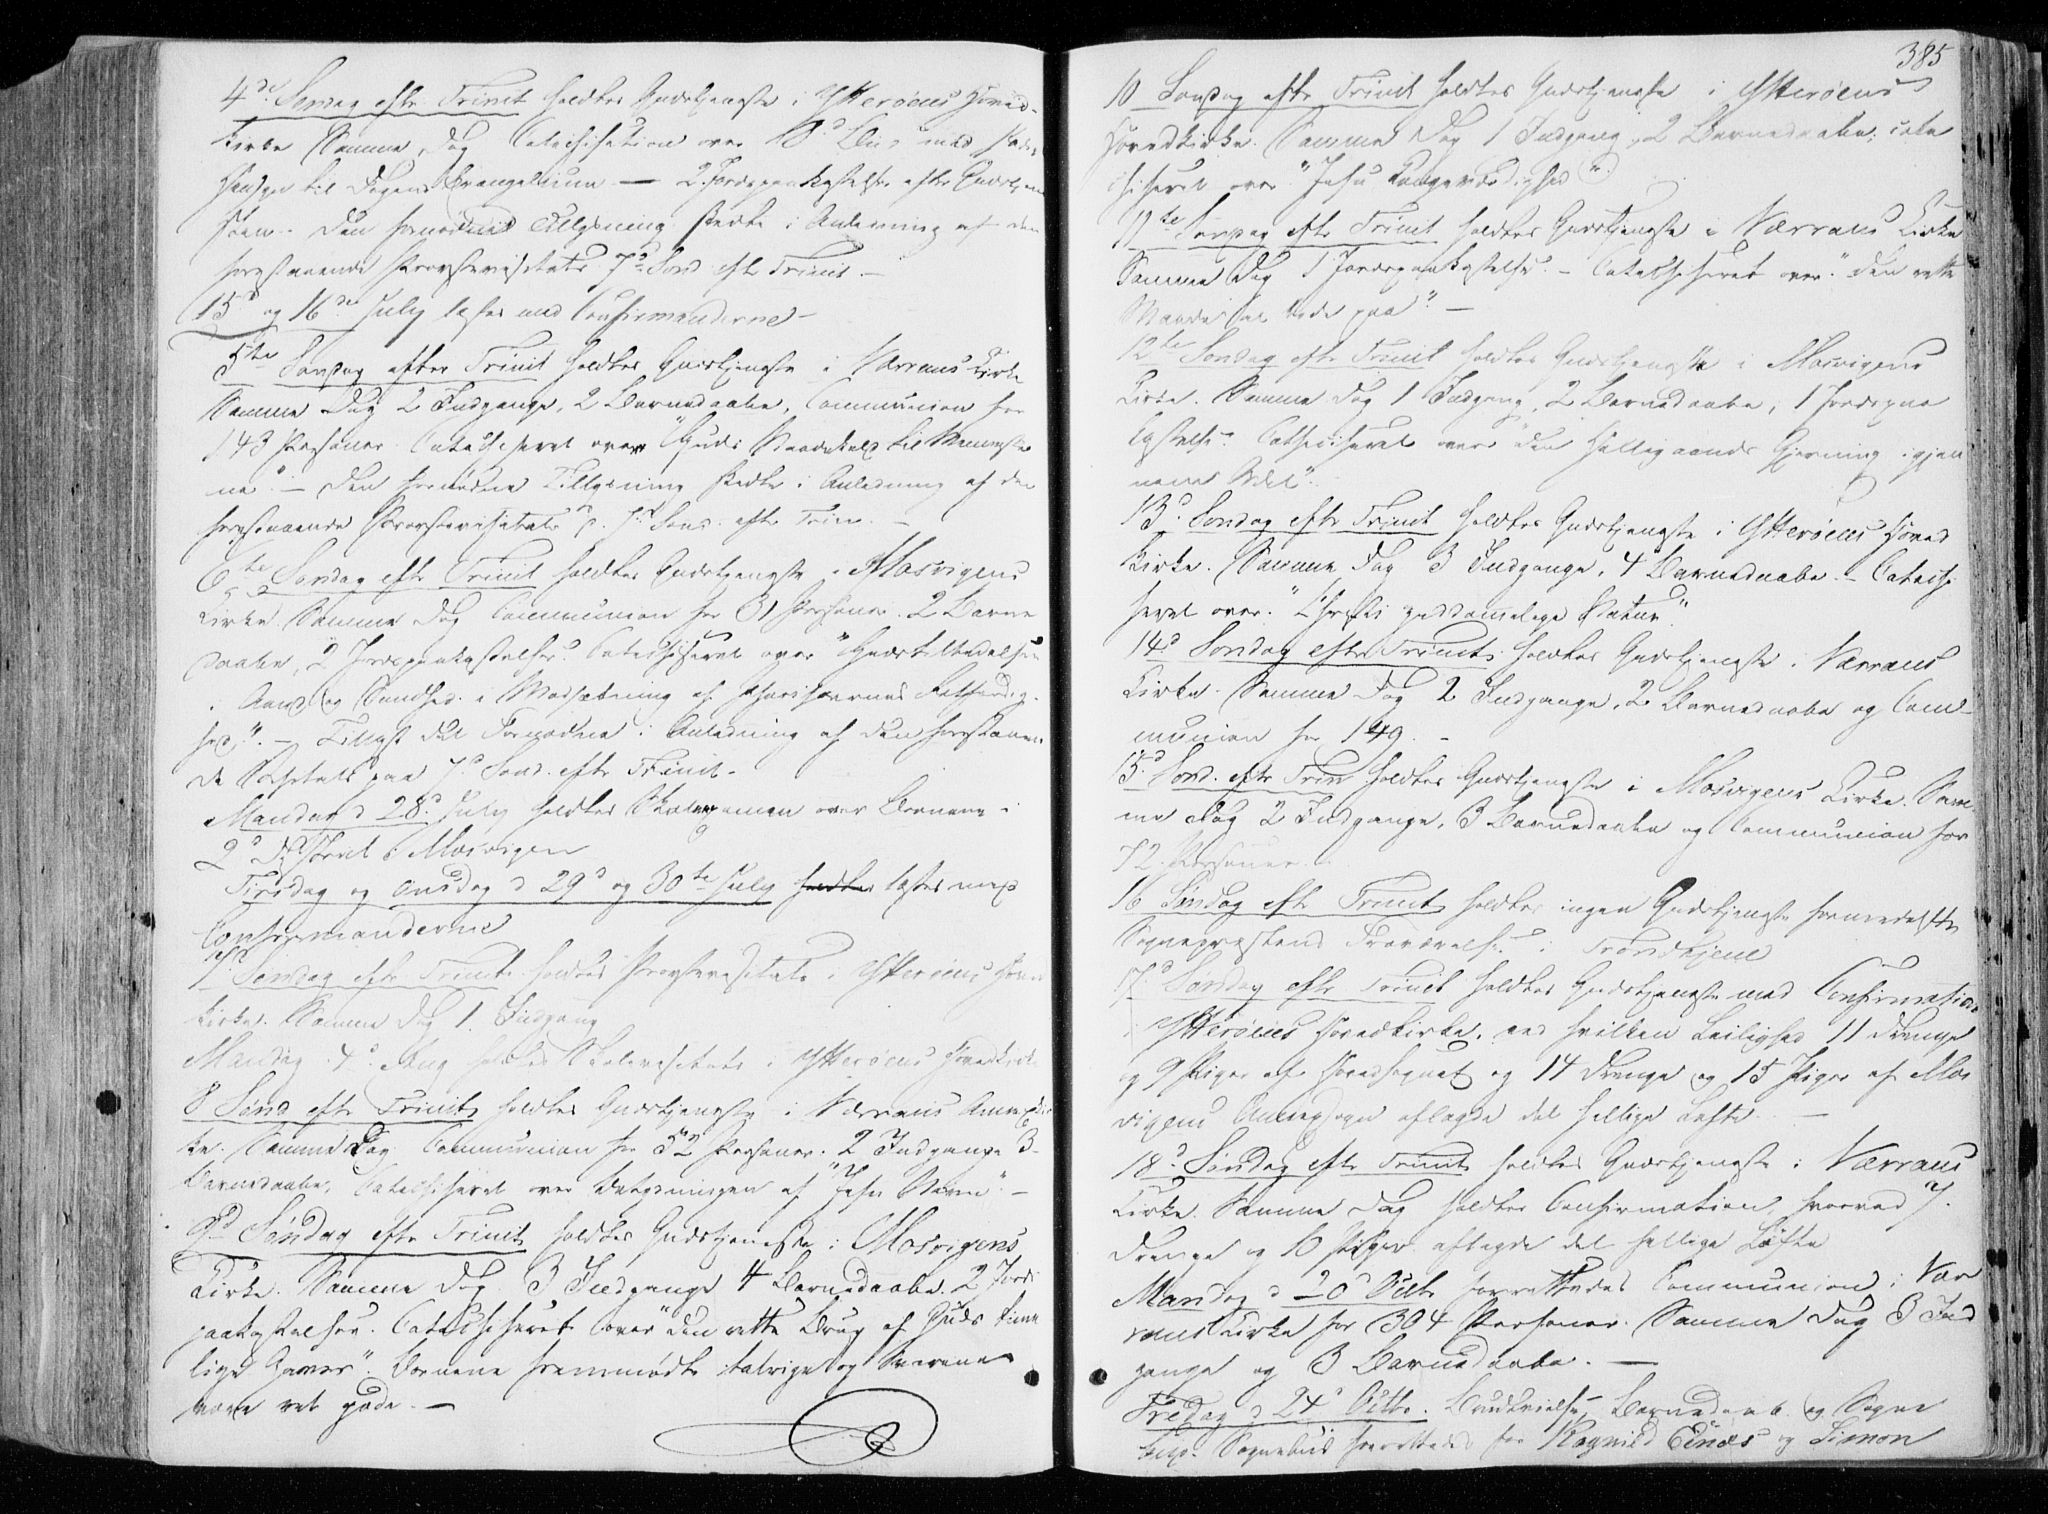 4d. Søndag efter Trinit holdtes Gudstjeneste i Ytterøens Hoved-
kirke Samme Dag Catechisation over med
Hensyn til Dagens Evangelium — 2 Jordpaakastelser efter Gudstjene
sten. Den fornødne Tillysning skedte i Anledning af den
forestaaende Provstevisitats 7d Sønd efter Trinit. —
15d og 16de July læstes med Confirmanderne —
5te Søndag efter Trinit holdtes Gudstjeneste i Værrans Kirke
Samme Dag 2 Indgange, 2 Barnedaabe, Communion for
143 Personer. Catechiseret over "Guds Naadekald til Menneske
ne". — Den fornødne Tillysning skedte i Anledning af den
forestaaende Provstevisitats p. 7d Sønd. efter Trin. —
6te Søndag efter Trinit holdtes Gudstjeneste i Mosvigens
Kirke Samme Dag Communion for 31 Personer. 2 Barne
daabe, 2 Jordpaakastelser. Catechiseret over "Gudstilbedelsen
i Aand og Sandhed i Modsætning af Pharisæernes Retfærdig-
hed". — Tillyst det Fornødne i Anledning af den forestaaen
de Visitats paa 7d Sønd. efter Trinit —
Mandag d 28d July holdtes Skoleexamen over Børnene i
2d District i Mosvigen
Tirsdag og Onsdag d 29d og 30te July holdtes læstes med
Confirmanderne
7d Søndag efter Trinit holdtes Provstevisitats i Ytterøens Hoved
kirke. Samme Dag 1 Indgang
Mandag 4d Aug holdtes Skolevisitats i Ytterøens Hovedkirke
8 Sønd efter Trinit holdtes Gudstjeneste i Værrans Annexkir
ke. Samme Dag Communion for 52 Personer. 2 Indgange 3
Barnedaabe, Catechiseret over Betydningen af "Jesu Navn". —
9d Søndag efter Trinit holdtes Gudstjeneste i Mosvigens
Kirke. Samme Dag 3 Indgange 4 Barnedaabe. 2 Jord
paakastelser. Catechiseret over "den rette Brug af Guds timme
lige Gaver". Børnene fremmødte talrige og Svarene
vare ret gode. —
385
10 Søndag efter Trinit holdtes Gudstjeneste i Ytterøens
Hovedkirke. Samme Dag 1 Indgang, 2 Barnedaabe, cate
chiseret over "Jesu ".
11te Søndag efter Trinit holdtes Gudstjeneste i Værrans Kirke
Samme Dag 1 Jordpaakastelse. — Catechiseret over "den rette
Maade at bede paa". —
12te Søndag efter Trinit holdtes Gudstjeneste i Mosvigens
Kirke. Samme Dag 1 Indgang, 2 Barnedaabe, 1 Jordpaa
kastelse. Catechiseret over "den Helligaands Gjerning igjen
nem ".
13d. Søndag efter Trinit holdtes Gudstjeneste i Ytterøens Hoved
kirke. Samme Dag 3 Indgange, 4 Barnedaabe. — Catechi
seret over "Christi guddommelige Natur".
14d Søndag efter Trinit holdtes Gudstjeneste i Værrans
Kirke. Samme Dag 2 Indgange, 2 Barnedaabe og Com-
munion for 149. —
15d. Sønd. efter Trin holdtes Gudstjeneste i Mosvigens Kirke. Sam
me Dag 2 Indgange, 3 Barnedaabe og Communion for
72 Personer.
16 Søndag efter Trinit holdtes ingen Gudstjeneste formedelst
Sognepræstens Fraværelse i Trondhjem
17d Søndag efter Trinit holdtes Gudstjeneste med Confirmation
i Ytterøens Hovedkirke, ved hvilken Leilighed 11 Drenge
og 9 Piger af Hovedsognet og 14 Drenge og 15 Piger af Mos
vigens Annexsogn aflagde det hellige Løfte. —
18d. Søndag efter Trinit holdtes Gudstjeneste i Værrans
Kirke. Samme Dag holdtes Confirmation, hvorved 7
Drenge og 10 Piger aflagde det hellige Løfte
Mandag d 20d Octb forrettedes Communion i Vær
rans Kirke for 394 Personer. Samme Dag 3 Ind
gange og 3 Barnedaabe. —
Fredag d 24d Octbr. Brudevielse, Barnedaab og Sogne
bud. Sognebud forrettedes for Ragnild Eines og Simon